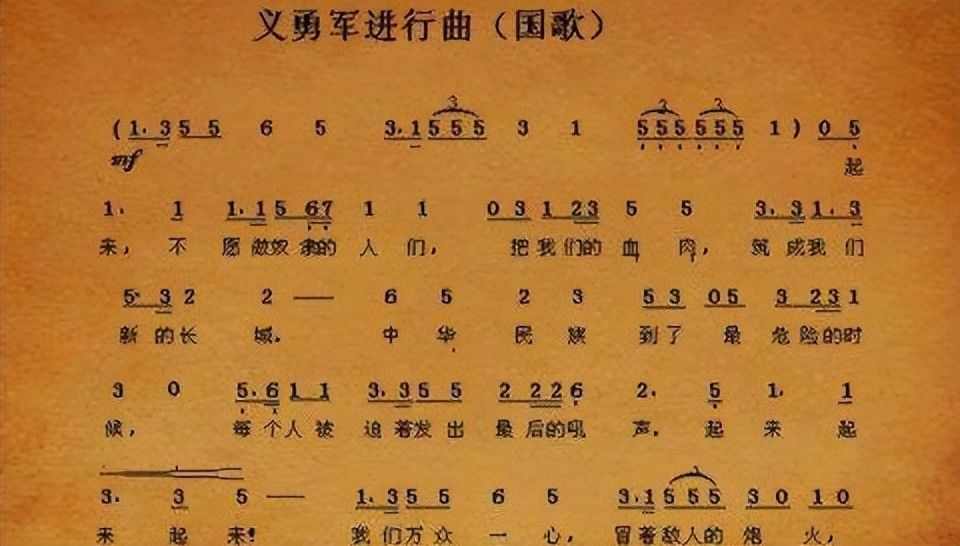 义勇军进行曲（国歌）
3 3 3
(1. 3 5 5 6 5 3. 1 5 5 5 3 1 5 5 5 5 5 5 1) 0 5
起
1. 1 1. 1 5 6 7 1 1 0 3 1 2 3 5 5 3. 3 1. 3
来，不 愿做奴隶的 人 们， 把我们的 血 肉， 筑 成我 们
5. 3 2 2 — 6 5 2 3 5 3 0 5 3 2 3 1
新 的长 城。 中 华 民 族 到了 最 危险的时
3 0 5. 6 1 1 3. 3 5 5 2 2 2 6 2. 5 1. 1
候， 每个人被 迫着发出 最后的吼 声。 起 来 起
3
3. 3 5 — 1. 3 5 5 6 5 3. 1 5 5 5 3 0 1 0
来 起 来！ 我们万众 一 心， 冒着敌人的 炮 火，